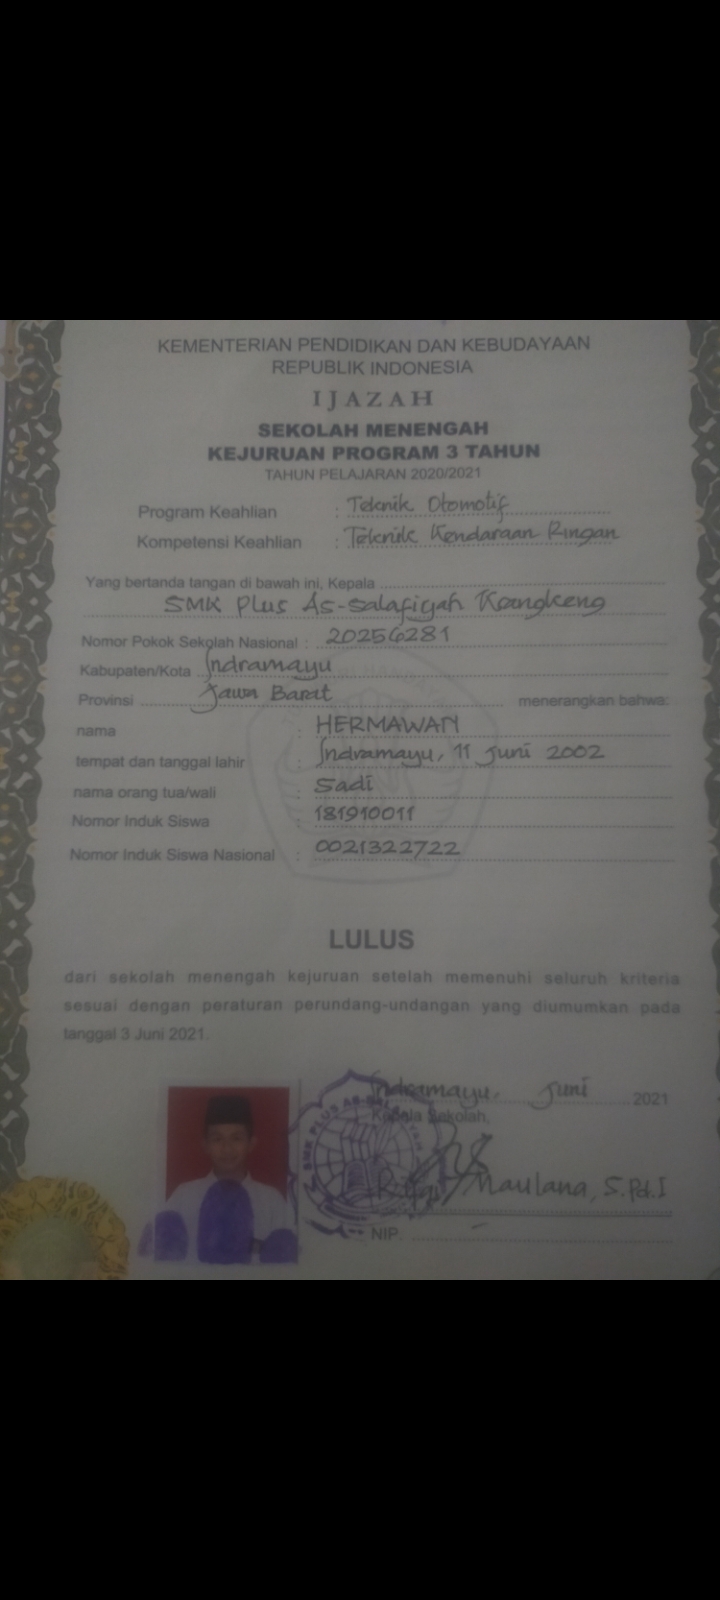 KEMENTERIAN PENDIDIKAN DAN KEBUDAYAAN
REPUBLIK INDONESIA
IJAZAH
SEKOLAH MENENGAH
KEJURUAN PROGRAM 3 TAHUN
TAHUN PELAJARAN 2020/2021
Program Keahlian : Teknik Otomotif
Kompetensi Keahlian : Teknik Kendaraan Ringan
Yang bertanda tangan di bawah ini, Kepala
SMK Plus As-Salafiyah Kongkeng
Nomor Pokok Sekolah Nasional : 20256281
Kabupaten/Kota Indramayu
Provinsi Jawa Barat menerangkan bahwa:
nama : HERMAWAN
tempat dan tanggal lahir : Indramayu, 11 Juni 2002
nama orang tua/wali : Sadi
Nomor Induk Siswa : 181910011
Nomor Induk Siswa Nasional : 0021322722
LULUS
dari sekolah menengah kejuruan setelah memenuhi seluruh kriteria
sesuai dengan peraturan perundang-undangan yang diumumkan pada
tanggal 3 Juni 2021.
Indramayu, Juni 2021
Kepala Sekolah,
SMK PLUS AS-
Maulana, S.Pd.I
NIP. -